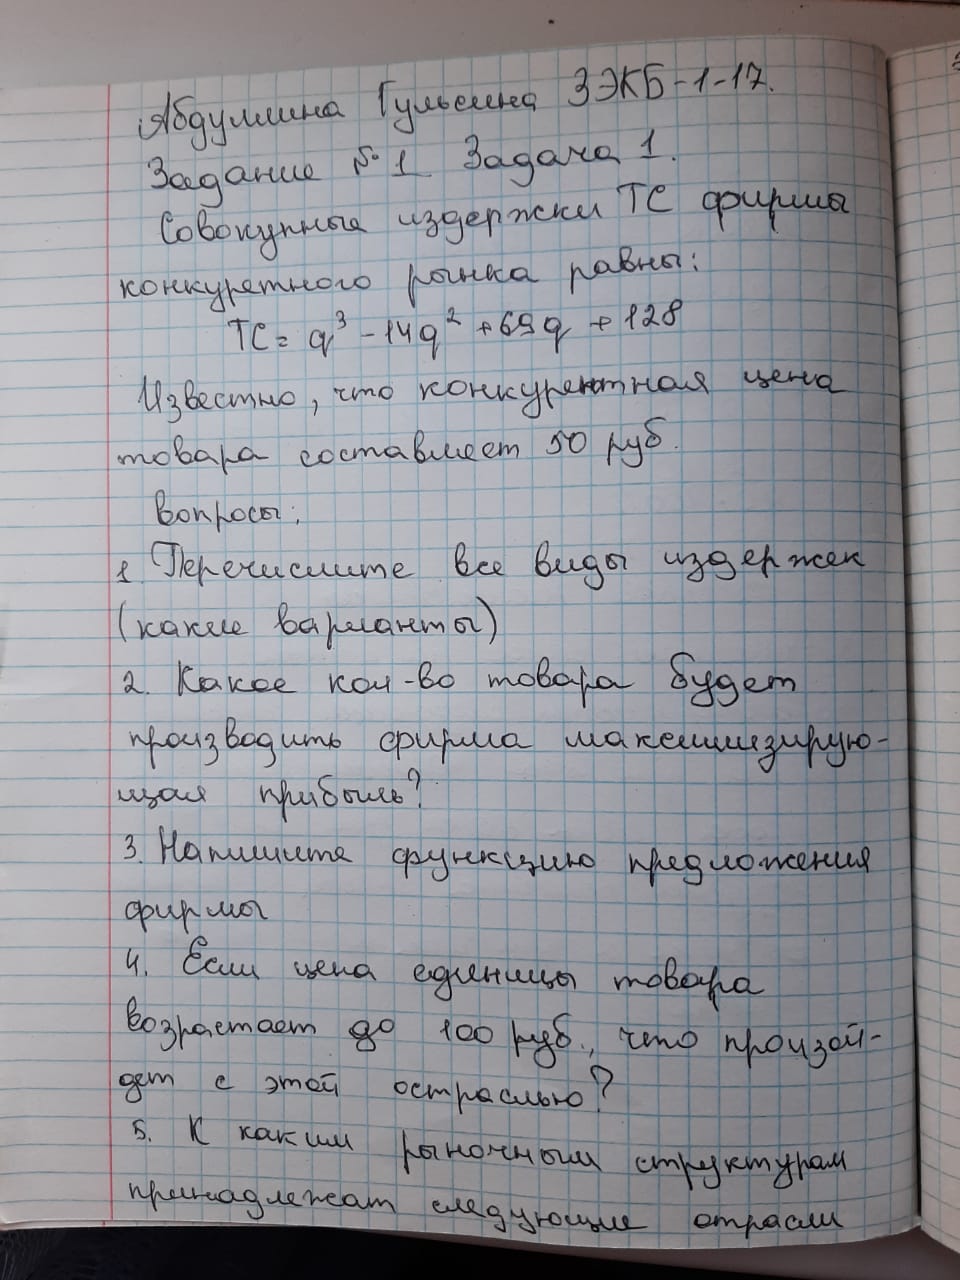 Абдуллина Гульсина ЗЭКБ-1-17.
Задание №1 Задача 1.
Совокупные издержки ТС фирмы
конкуретного рынка равны:
ТС = q³ - 14q² + 69q + 128
Известно, что конкурентная цена
товара составляет 50 руб.
Вопросы:
1. Перечислите все виды издержек
(какие варианты)
2. Какое кол-во товара будет
производить фирма максимизирую-
щая прибыль?
3. Напишите функцию предложения
фирмы
4. Если цена единицы товара
возрастает до 100 руб., что произой-
дет с этой остраслью?
5. К каким рыночным структурам
принадлежат следующие отрасли